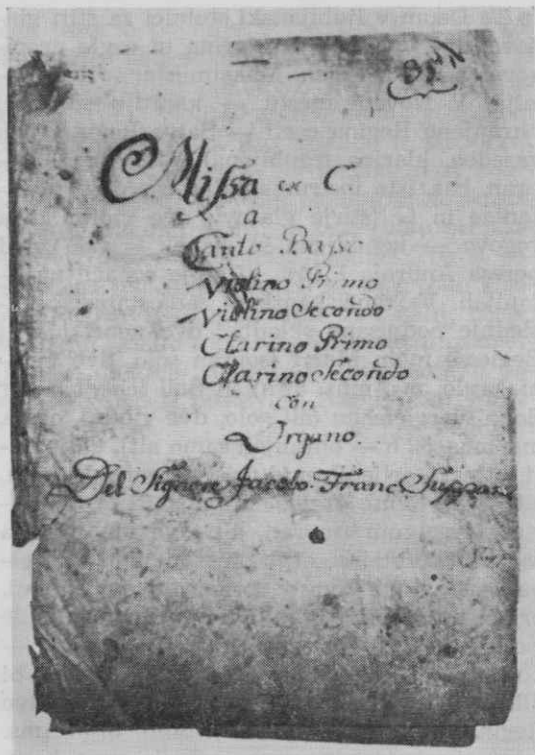 Missa ex C
a
Canto Basso
Violino Primo
Violino Secondo
Clarino Primo
Clarino Secondo
con
Organo.
Del Signore Jacobo Franc Suppan